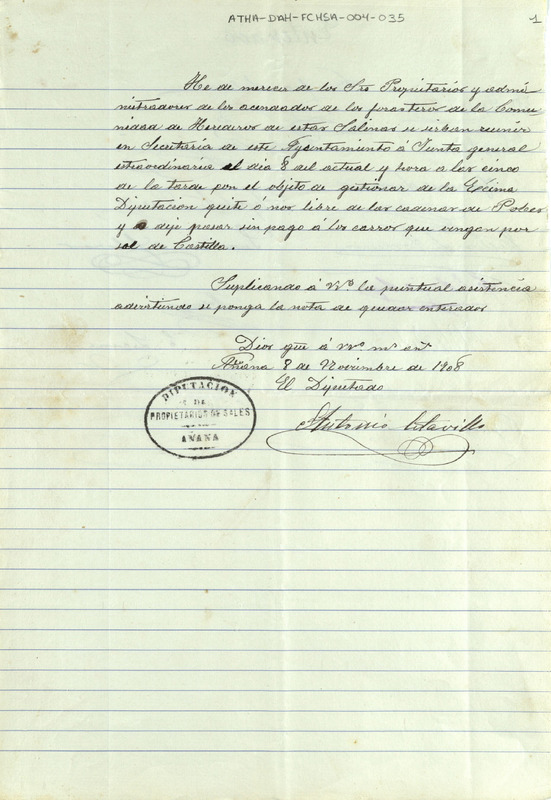 ATHA-DAH-FCHSA-004-035
1
He de merecer de los Sres Propietarios y admi
nistradores de los acendados de los forasteros de la Comu-
nidad de Herederos de estas Salinas se sirban reunir
en Secretaria de este Ayuntamiento á Junta general
estraordinaria el dia 8 del actual y hora a las cinco
de la tarde por el objeto de gestionar de la Excma
Diputacion quite ó nos libre de las cadenas de Pobes
y deje pasar sin pago á los carros que vengan por
sal de Castilla.
Suplicando á Vs. la puntual asistencia
advirtiendo se ponga la nota de quedar enterados
Dios gue á Vs ms ans
Añana 8 de Noviembre de 1908
El Diputado
Antonio
DIPUTACION
DE
PROPIETARIOS DE SALES
AÑANA